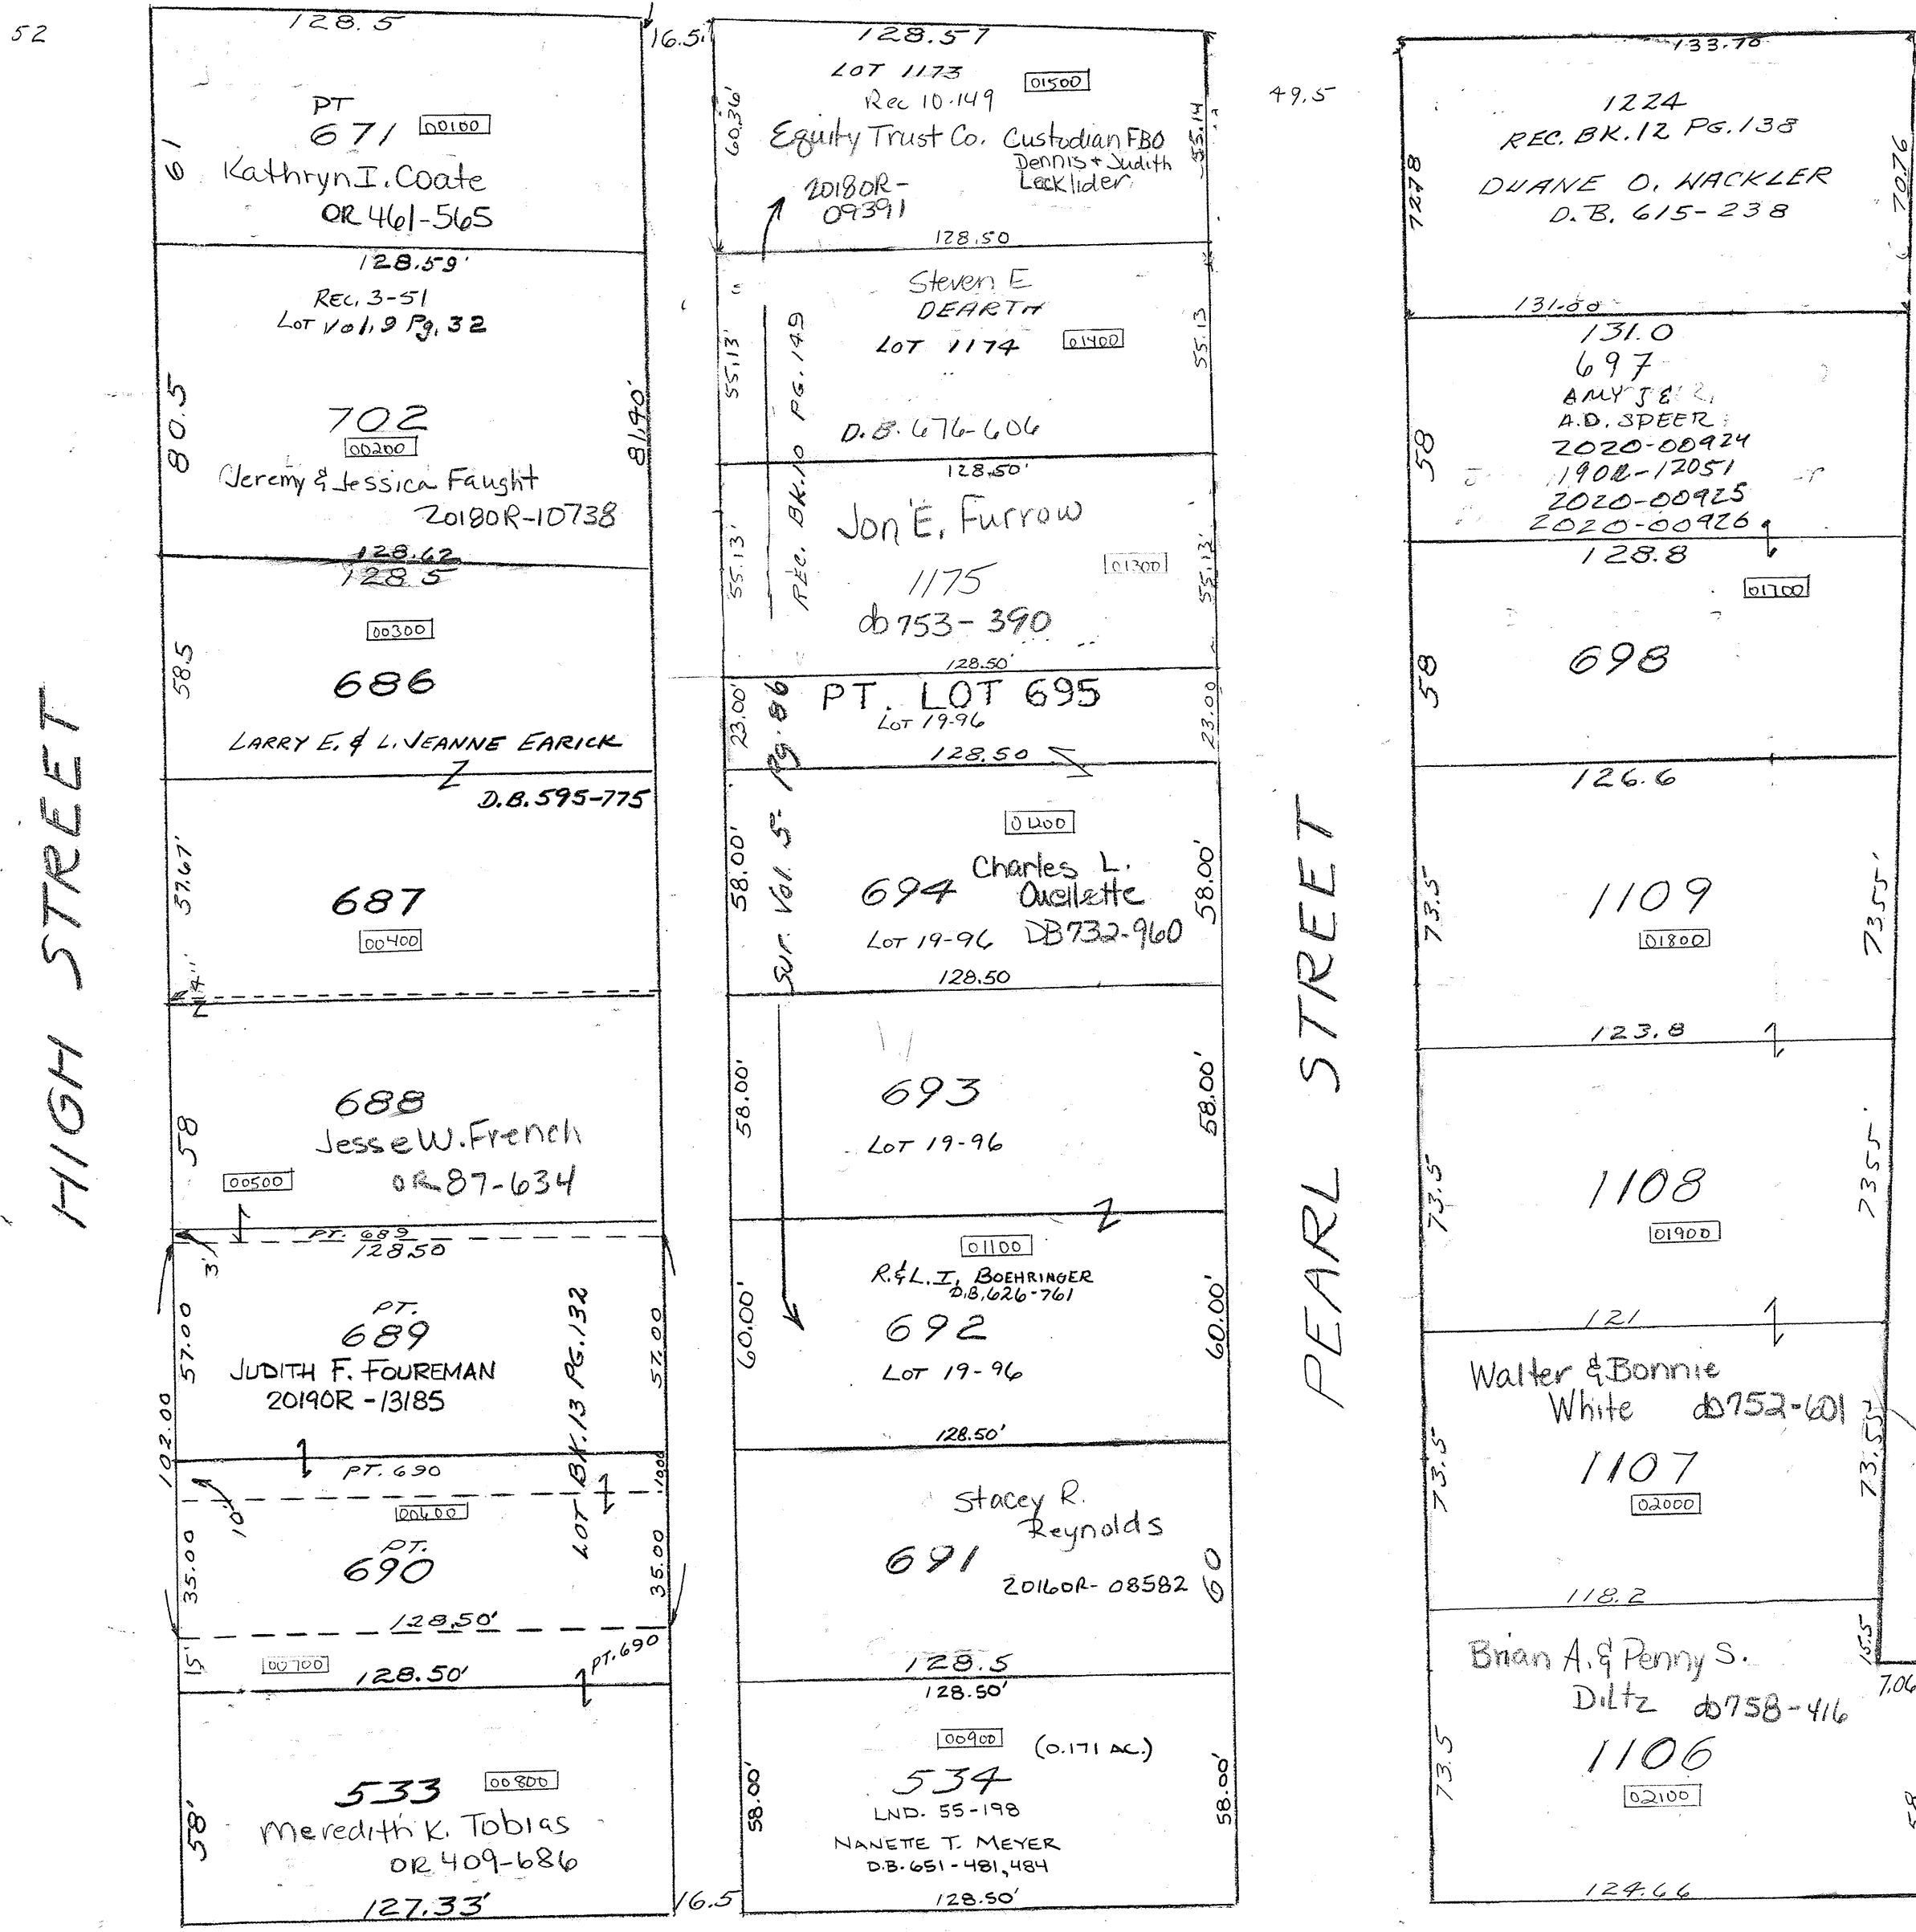 52
128.5
PT
671 00100
61
Kathryn I. Coate
OR 461-565
128.59'
REC. 3-51
LOT Vol. 9 Pg. 32
80.5
81.40'
702
00200
Jeremy & Jessica Faught
2018OR-10738
128.62
128.5
00300
58.5
686
LARRY E. & L. JEANNE EARICK
D.B. 595-775
37.67'
687
00400
688
58
Jesse W. French
00500
OR 87-634
PT. 689
128.50
3'
57.00
57.00
PT.
689
JUDITH F. FOUREMAN
2019OR-13185
LOT BK. 13 PG. 132
102.00
PT. 690
10'
00600
PT.
690
35.00
35.00
128.50'
15'
00700
PT. 690
128.50'
533 00800
58'
Meredith K. Tobias
OR 409-686
127.33'
HIGH STREET
16.5'
128.57
LOT 1173 01500
Rec 10-149
60.36'
55.14
Equity Trust Co. Custodian FBO
Dennis + Judith
Lecklider
2018OR-
09391
128.50
Steven E
DEARTH
LOT 1174 01400
55.13'
55.13
D.B. 676-606
REC. BK. 10 PG. 149
128.50'
Jon E. Furrow
55.13'
55.13'
1175 01300
db 753-390
128.50'
PT. LOT 695
LOT 19-96
23.00'
23.00
128.50
Sur. Vol. 5- Pg. 86
01200
Charles L.
694 Ouellette
58.00'
58.00'
LOT 19-96 DB 732-960
128.50
693
58.00'
58.00'
LOT 19-96
01100
R. & L. I. BOEHRINGER
D.B. 626-761
692
60.00'
60.00'
LOT 19-96
128.50'
Stacey R.
Reynolds
691
60
2016OR-08582
128.5
128.50'
00900 (0.171 AC.)
534
58.00'
58.00'
LND. 55-198
NANETTE T. MEYER
D.B. 651-481, 484
128.50'
16.5
49.5
PEARL STREET
133.70
1224
REC. BK. 12 PG. 138
72.78
70.76
DUANE O. WACKLER
D.B. 615-238
131.00
131.0
697
A.D. SPEER
58
2020-00924
19OR-12051
2020-00925
2020-00926
128.8
01700
58
698
126.6
1109
73.5
73.55'
01800
123.8
1108
73.5
73.55'
01900
121
Walter & Bonnie
White db 752-601
1107
73.5
73.55'
02000
118.2
15.5
7.06
Brian A. & Penny S.
Diltz db 758-416
1106
73.5
02100
124.66